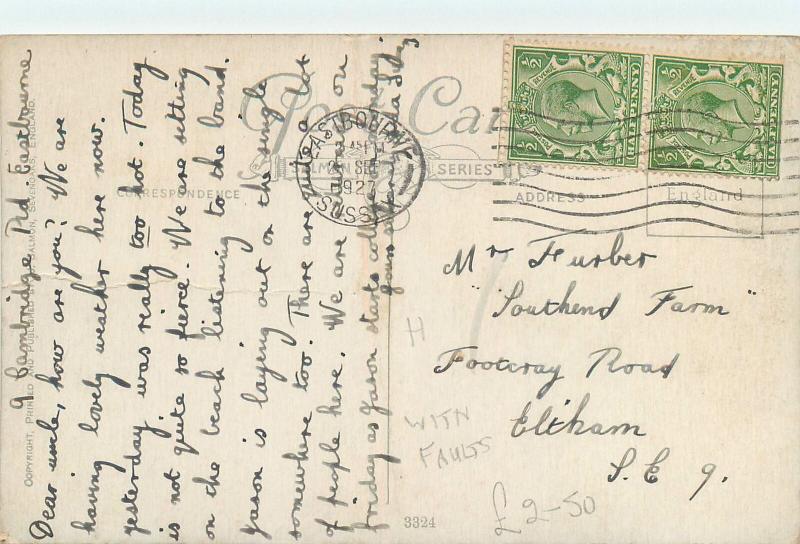 9 Cambridge Rd. Eastbourne
Dear uncle, how are you? We are
having lovely weather here now.
yesterday was really too hot. Today
is not quite so fierce. We are sitting
on the beach listening to the band.
Jason is laying out on the shingle
somewhere too. There are quite a lot
of people here. We are going home on
friday as Jason starts college Monday.
COPYRIGHT, PRINTED AND PUBLISHED BY J. SALMON, SEVENOAKS, ENGLAND.
Post Card
SALMON SERIES
CORRESPONDENCE
ADDRESS
England
EASTBOURNE
SEP
1927
SUSSEX
½ REVENUE ½ HALFPENNY
½ REVENUE ½ HALFPENNY
Mr Furber
"Southend Farm"
Footcray Road
Eltham
S.E 9.
H
WITH
FAULTS
£2-50
3324